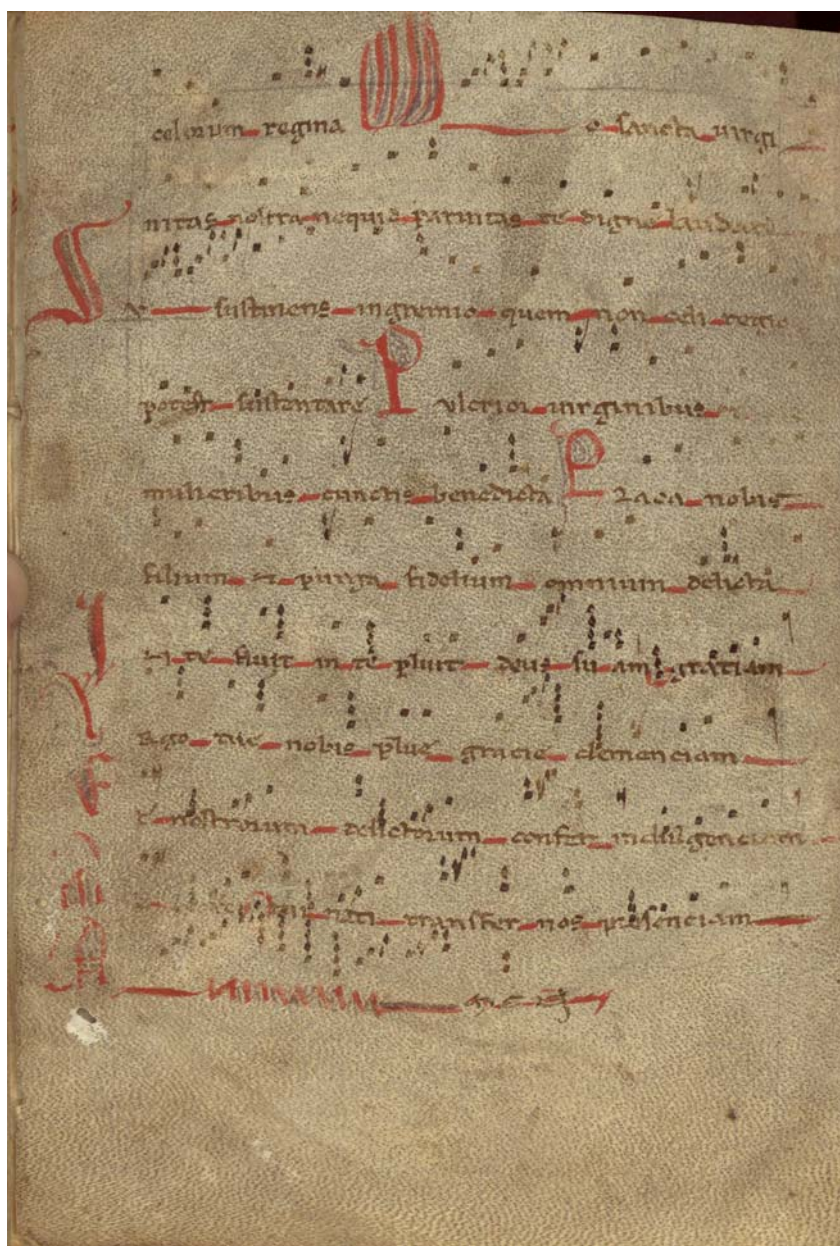 celorum regina O o sancta uirgi
nitas nostra nequid paruitas te digne laudare
sustinens in gremio quem non celi regio
potest sustentare P ulcrior uirginibus
mulieribus cunctis benedicta P laca nobis
filium et purga fidelium omnium delicta
In te fluit in te pluit deus suam gratiam
ergo tue nobis plue gracie clemenciam
nostrorum delictorum confer indulgenciam
nati transfer nos presenciam
A m e n